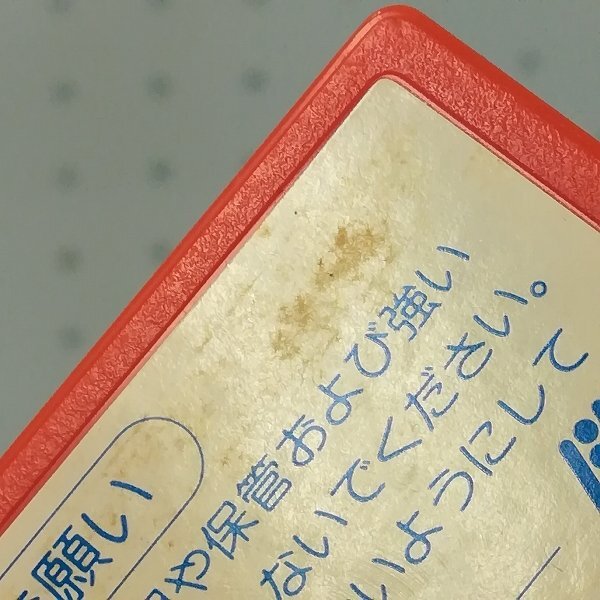 願い
や保管および強い
ないでください。
いようにして